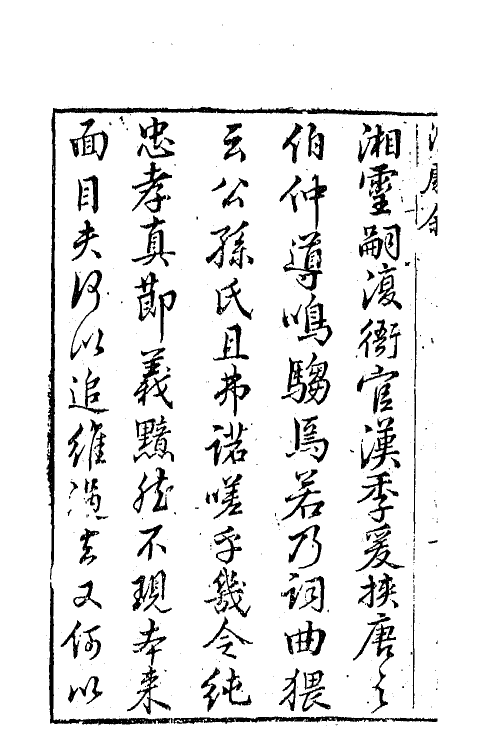 湘靈嗣復衙官漢季爰挾唐之
伯仲導鳴騶焉若乃詞曲猥
云公孫氏且弗諾嗟乎幾令純
忠孝真節義黯然不現本来
面目夫何以追維 又何以